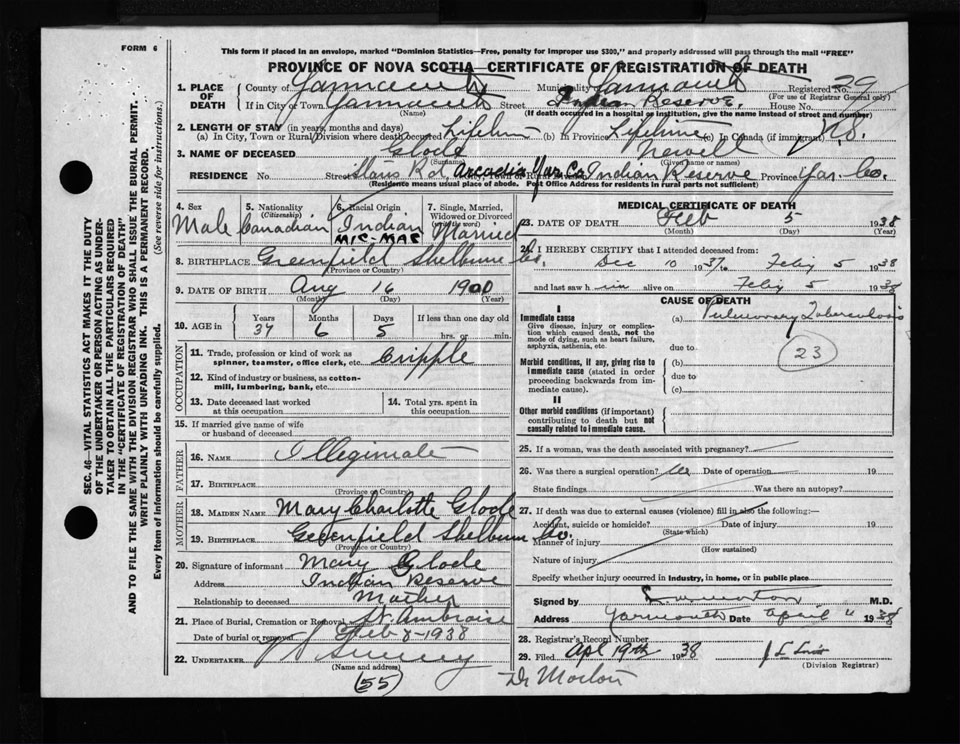 FORM 6
This form if placed in an envelope, marked "Dominion Statistics—Free, penalty for improper use $300," and properly addressed will pass through the mail "FREE"
PROVINCE OF NOVA SCOTIA—CERTIFICATE OF REGISTRATION OF DEATH
1. PLACE OF DEATH County of Yarmouth Municipality Yarmouth Registered No. 29
(For use of Registrar General only)
If in City or Town Yarmouth Street Indian Reserve. House No.
(Name) (If death occurred in a hospital or institution, give the name instead of street and number)
2. LENGTH OF STAY (in years, months and days)
(a) In City, Town or Rural Division where death occurred Lifetime (b) in Province Lifetime (c) In Canada (if immigrant)
3. NAME OF DECEASED Glode Newell
(Surname) (Given name or names)
RESIDENCE No. Street Starrs Rd, Arcadia Yar. Co. Indian Reserve Province Yar. Co.
(Residence means usual place of abode. Post Office Address for residents in rural parts not sufficient)
4. Sex 5. Nationality (Citizenship) 6. Racial Origin 7. Single, Married, Widowed or Divorced (write the word)
Male Canadian Indian Married
MIC-MAC
8. BIRTHPLACE Greenfield Shelburne Co.
(Province or Country)
9. DATE OF BIRTH Aug 16 1900
(Month) (Day) (Year)
10. AGE in Years Months Days If less than one day old
37 6 5 hrs. or min.
OCCUPATION
11. Trade, profession or kind of work as spinner, teamster, office clerk, etc. Cripple
12. Kind of industry or business, as cotton-mill, lumbering, bank, etc.
13. Date deceased last worked at this occupation
14. Total yrs. spent in this occupation
15. If married give name of wife or husband of deceased
FATHER
16. NAME Illegimate
17. BIRTHPLACE
(Province or Country)
MOTHER
18. MAIDEN NAME Mary Charlotte Gloode
19. BIRTHPLACE Greenfield Shelburn Co.
(Province or Country)
20. Signature of informant Mary Glode
Address Indian Reserve
Relationship to deceased Mother
21. Place of Burial, Cremation or Removal St. Ambroise
Date of burial or removal Feb 8-1938
22. UNDERTAKER
(Name and address)
(55)
MEDICAL CERTIFICATE OF DEATH
23. DATE OF DEATH Feb 5 1938
(Month) (Day) (Year)
24. I HEREBY CERTIFY that I attended deceased from:
Dec 10 1937 to Feby 5 1938
and last saw him alive on Feby 5 1938
CAUSE OF DEATH
I
Immediate cause (a) Pulmonary Tuberculosis
Give disease, injury or complication which caused death, not the mode of dying, such as heart failure, asphyxia, asthenia, etc.
due to
23
Morbid conditions, if any, giving rise to immediate cause (stated in order proceeding backwards from immediate cause).
(b)
due to
(c)
II
Other morbid conditions (if important) contributing to death but not causally related to immediate cause.
25. If a woman, was the death associated with pregnancy?
26. Was there a surgical operation? no Date of operation 19
State findings Was there an autopsy?
27. If death was due to external causes (violence) fill in also the following:—
Accident, suicide or homicide? Date of injury 19
(State which)
Manner of injury
(How sustained)
Nature of injury
Specify whether injury occurred in industry, in home, or in public place
Signed by M.D.
Address Yarmouth Date April 11 1938
28. Registrar's Record Number
29. Filed Apl 19th 1938
(Division Registrar)
Dr Morton
SEC. 46—VITAL STATISTICS ACT MAKES IT THE DUTY
OF THE UNDERTAKER OR PERSON ACTING AS UNDER-
TAKER TO OBTAIN ALL THE PARTICULARS REQUIRED
IN THE "CERTIFICATE OF REGISTRATION OF DEATH"
AND TO FILE THE SAME WITH THE DIVISION REGISTRAR WHO SHALL ISSUE THE BURIAL PERMIT.
WRITE PLAINLY WITH UNFADING INK. THIS IS A PERMANENT RECORD.
Every item of information should be carefully supplied. (See reverse side for instructions.)